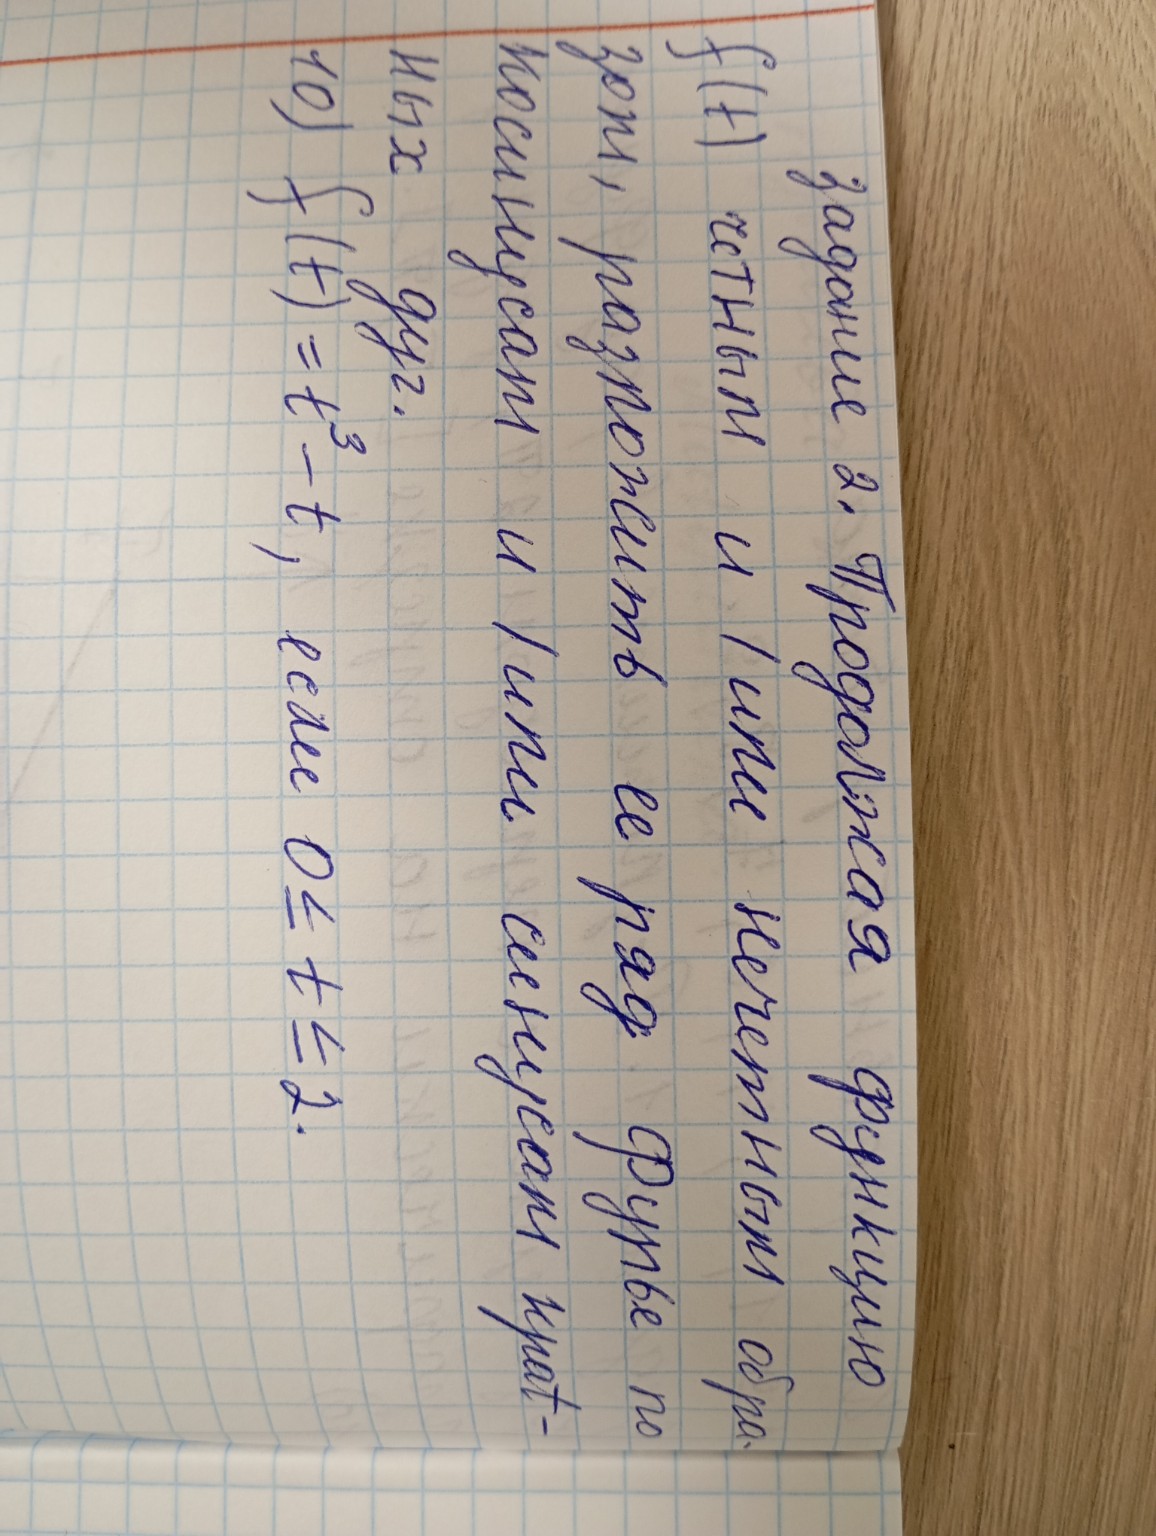 Задание 2. Продолжая функцию
f(t) четным и /или нечетным обра-
зом, разложить ее ряд Фурье по
косинусам и /или синусам крат-
ных дуг.
10) f(t) = t³ - t, если 0 ≤ t ≤ 2.